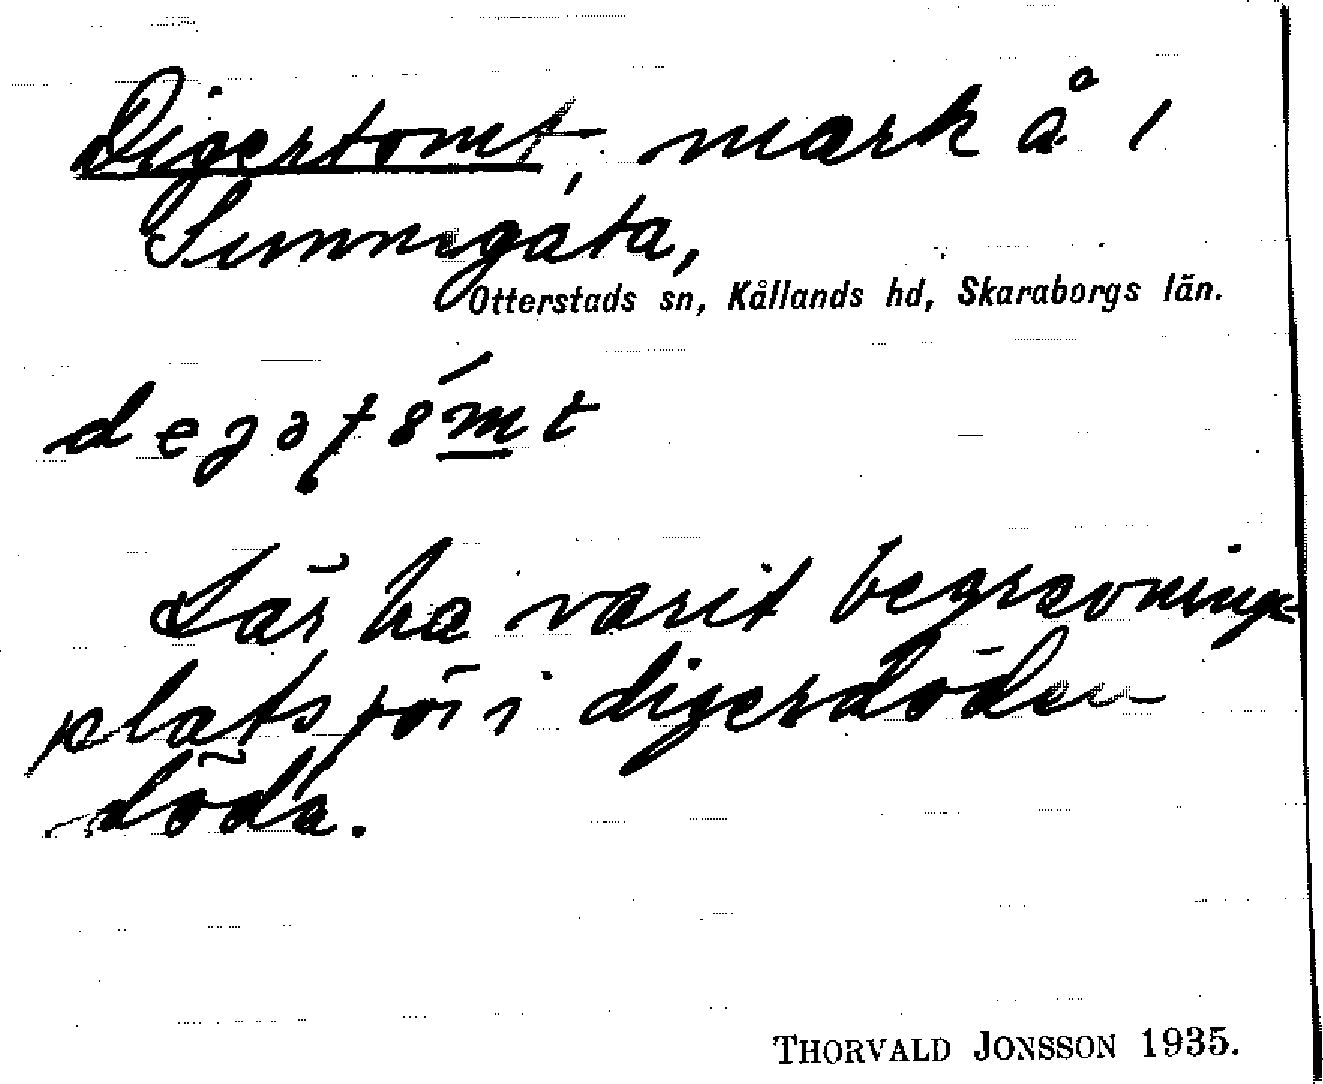 Digertomt, mark å 1
Sunnegåta,
Otterstads sn, Kållands hd, Skaraborgs län.
Lär ha varit begravnings-
plats för i digerdöden
döda.
THORVALD JONSSON 1935.